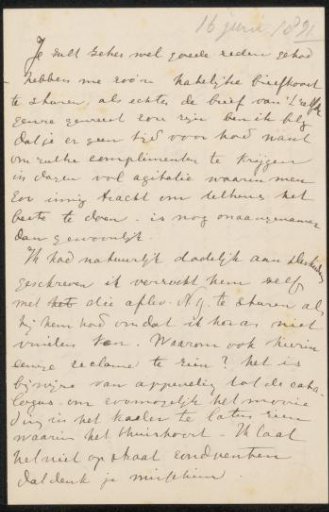 16 juni 1891
Je zult zeker wel goede reden gehad
hebben me zoo'n hatelijke briefkaart
te sturen, als echter de brief van 't zelfde
genre geweest zou zijn ben ik blij
dat je er geen tijd voor had want
om zulke complimenten te krijgen
in dagen vol agitatie waarin men
zoo innig tracht om telkens het
beste te doen is nog onaangenamer
dan gewoonlijk.
Ik had natuurlijk dadelijk aan
geschreven ik verzocht hem zelf
met die aflev. te sturen als
hij hem had omdat ik haar niet
vinden kon. Waarom ook hierin
eenige reclame te zien? het is
bijwijze van appendix tot de cata-
logus om zoo mogelijk het mooie
ding in het kader te laten zien
waarin het thuishoort. Ik laat
het niet op straat rondventen
dat denk je misschien.